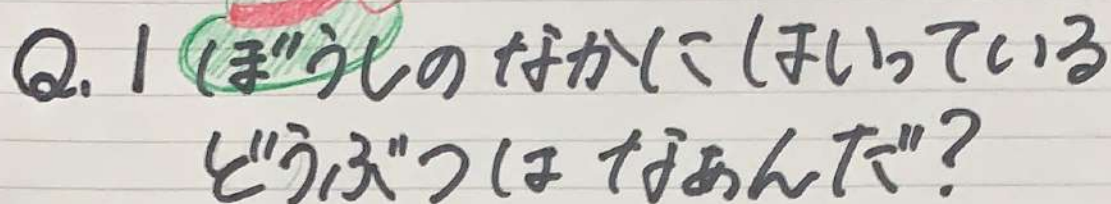 Q.1 ぼうしのなかにはいっている
どうぶつはなあんだ?